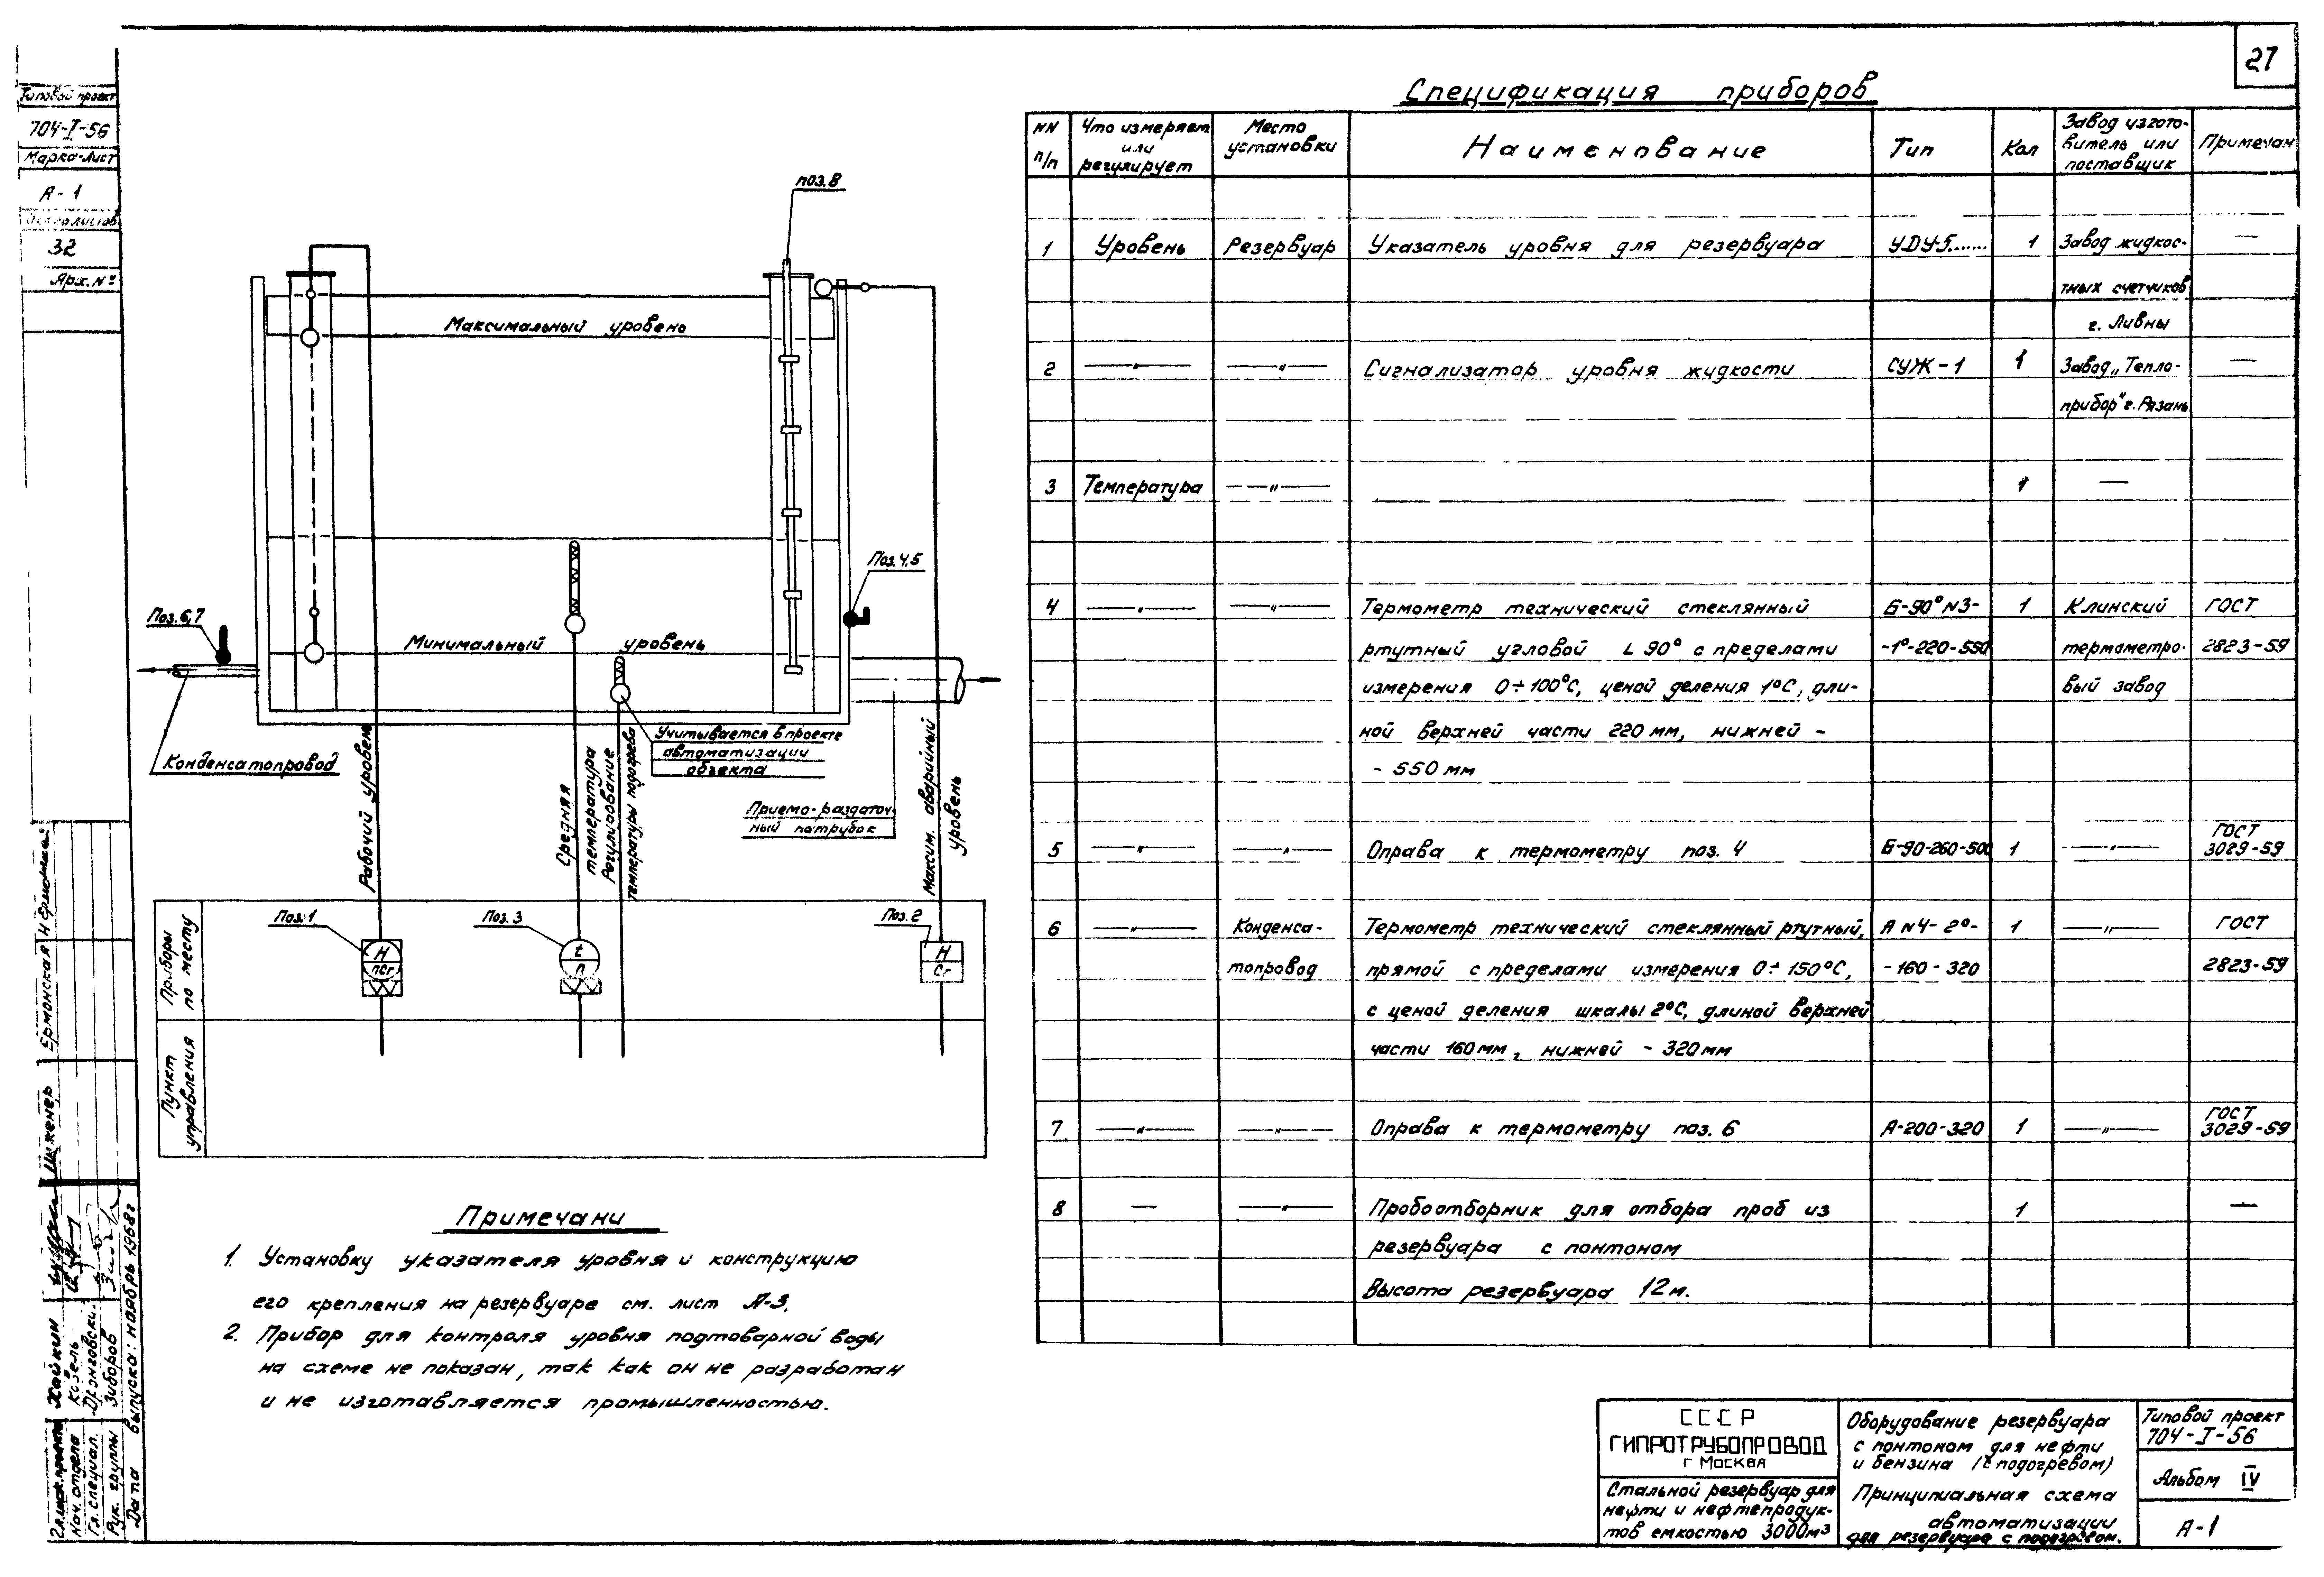 27
Типовой проект
704-I-56
Марка-лист
А-1
32
Арх. №
поз.8
Максимальный уровень
Поз.4,5
Поз.6,7
Минимальный уровень
Конденсатопровод
Учитывается в проекте
автоматизации
объекта
Приемо-раздаточ-
ный патрубок
Рабочий уровень
Средняя
температура
Регулирование
температуры подогрева
Максим. аварийный
уровень
Приборы
по месту
Поз.1
Н
ПСг
Поз. 3
t
П
Поз.2
Н
Сг
Пункт
управления
Примечани
1. Установку указателя уровня и конструкцию
его крепления на резервуаре см. лист А-3.
2. Прибор для контроля уровня подтоварной воды
на схеме не показан, так как он не разработан
и не изготавляется промышленностью.
Спецификация приборов
NN п/п
Что измеряет или регулирует
Место установки
Наименование
Тип
Кол
Завод изгото-
витель или
поставщик
Примечан
1 Уровень Резервуар Указатель уровня для резервуара УДУ-5...... 1 Завод жидкос- —
тных счетчиков
г. Ливны
2 —"— —"— Сигнализатор уровня жидкости СУЖ-1 1 Завод „Тепло- —
прибор" г. Рязань
3 Температура —"— 1 —
4 —"— —"— Термометр технический стеклянный Б-90° N3- 1 Клинский ГОСТ
ртутный угловой L 90° с пределами -1°-220-550 термометро- 2823-59
измерения 0÷100°С, ценой деления 1°С, дли- вый завод
ной верхней части 220 мм, нижней -
- 550 мм
5 —"— —"— Оправа к термометру поз. 4 Б-90-260-500 1 —"— ГОСТ 3029-59
6 —"— Конденса- Термометр технический стеклянный ртутный, А N4- 2°- 1 —"— ГОСТ
топровод прямой с пределами измерения 0÷150°С, -160-320 2823-59
с ценой деления шкалы 2°С, длиной верхней
части 160 мм, нижней - 320 мм
7 —"— —"— Оправа к термометру поз. 6 А-200-320 1 —"— ГОСТ 3029-59
8 — —"— Пробоотборник для отбора проб из 1 —
резервуара с понтоном
Высота резервуара 12 м.
СССР
ГИПРОТРУБОПРОВОД
г Москва
Стальной резервуар для
нефти и нефтепродук-
тов емкостью 3000 м³
Оборудование резервуара
с понтоном для нефти
и бензина (с подогревом)
Принципиальная схема
автоматизации
для резервуара с подогревом.
Типовой проект
704-I-56
Альбом IV
А-1
Инженер Ермонская
Гл. инж. проекта Хайкин
Нач. отдела Козель
Гл. специал.
Рук. группы Зиборов
Дата выпуска: ноябрь 1968г